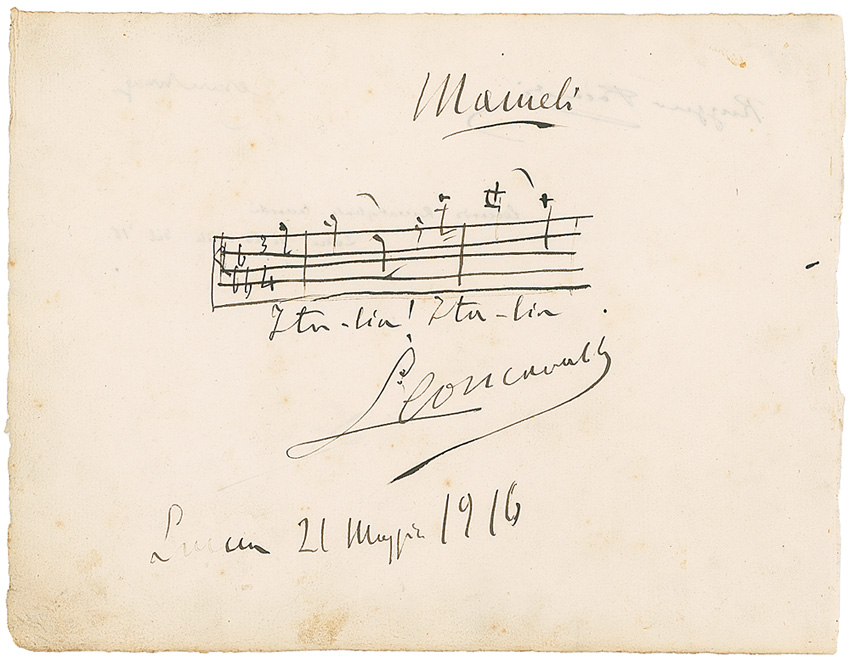 Mameli
3
4
Ita-lia! Ita-lia.
Leoncavallo
Lucca 21 Maggio 1916